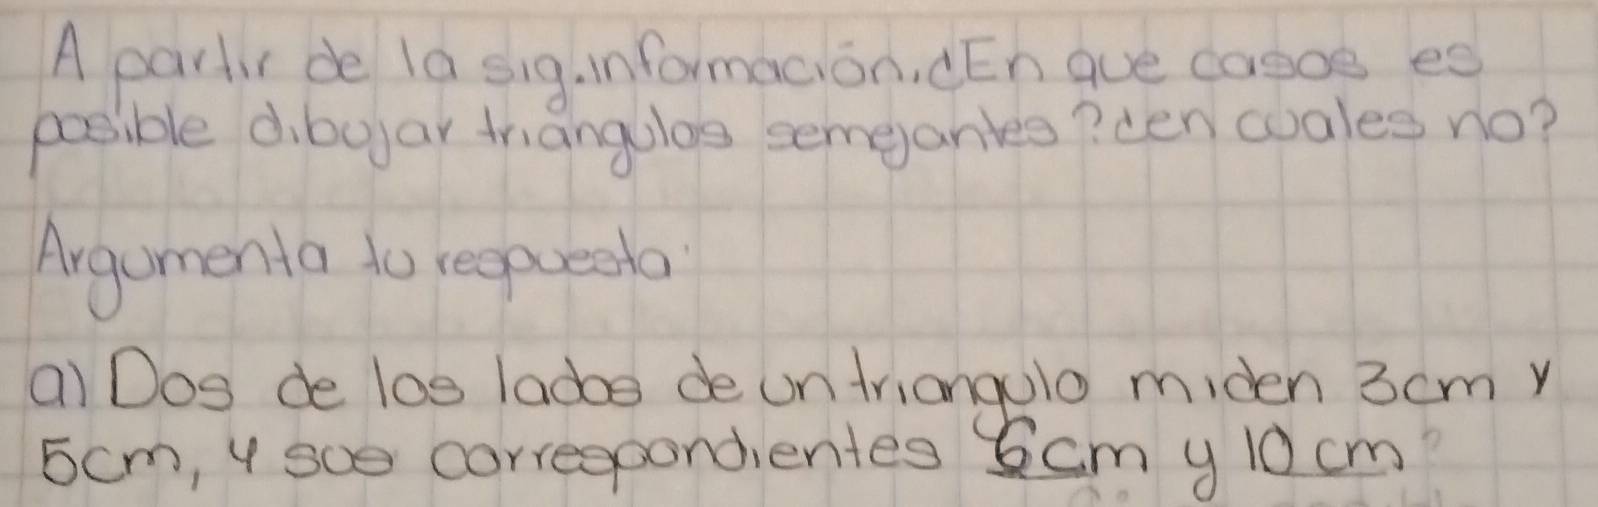 A partir de la sig.información.¿En que casos es
posible dibujar triángulos semejantes?¿en cuales no?
Argumenta tu respuesta:
a) Dos de los lados de un triangulo miden 3cm y
5cm, y sus correspondientes 6cm y 10cm?